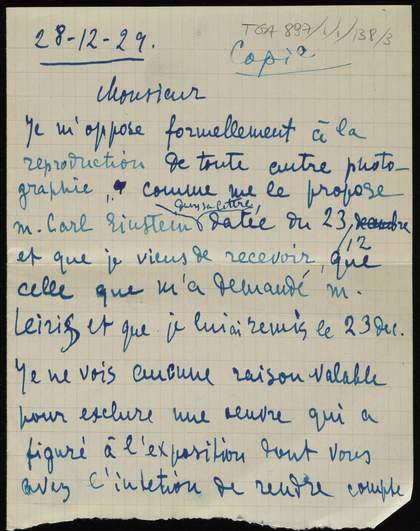 TGA 897/1/1/138/3
28-12-29.
Copia
Monsieur
Je m'oppose formellement à la
reproduction de toute autre photo-
graphie, comme me le propose
dans sa lettre,
m. Carl Einstein datée du 23
12
et que je viens de recevoir, que
celle que m'a demandé m.
Leiris, et que je lui ai remis le 23 dec.
Je ne vois aucune raison valable
pour esclure une oeuvre qui a
figuré à l'exposition dont vous
avez l'intetion de rendre compte